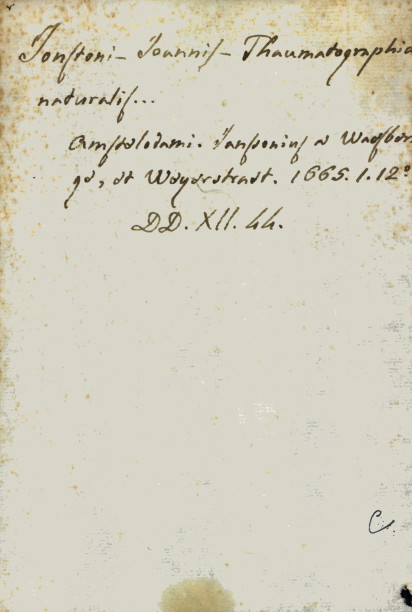 Jonstoni - Joannis - Thaumatographia
naturalis...
Amstelodami. Janssonius a Waesber-
ge, et Weyerstraet. 1665. 1. 12º
DD. XII. 44.
C.